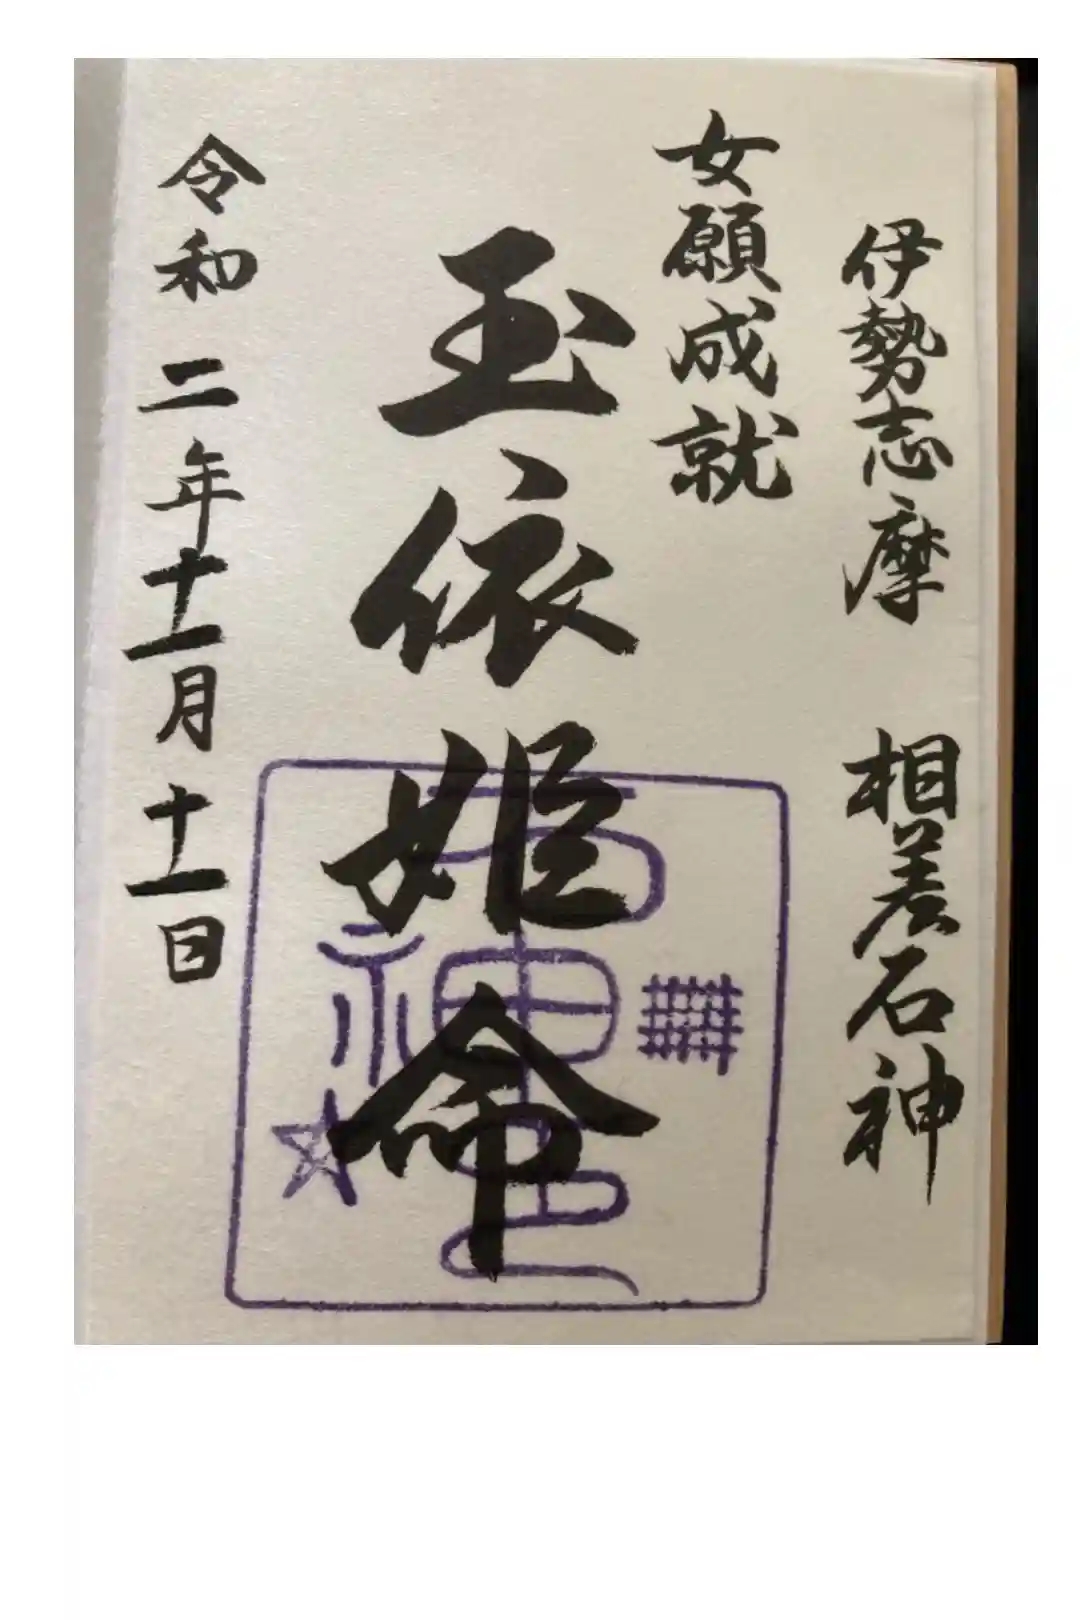 伊勢志摩 相差石神
女願成就
玉依姫命
令和二年十一月十一日
石神